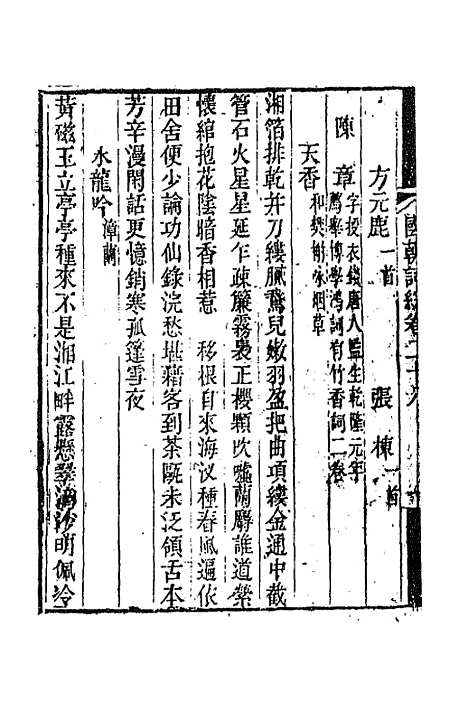 國朝詞綜卷二十六
方元鹿一首　張棟一首
陳章字授衣錢唐人監生乾隆元年
薦舉博學鴻詞有竹香詞二卷
天香和樊榭詠烟草
湘箔排乾并刀縷膩鵞兒嫩羽盈把曲項縷金通中截
管石火星星延乍疎簾霧裊正櫻顆吹噓蘭麝誰道縈
懷綰抱花陰暗香相惹　移根自來海汊種春風遍依
田舍便少論功仙錄浣愁堪藉客到茶甌未泛領舌本
芳辛漫閒話更憶銷寒孤篷雪夜
水龍吟漳蘭
黃磁玉立亭亭種來不是湘江畔露懸翠海沙明佩冷